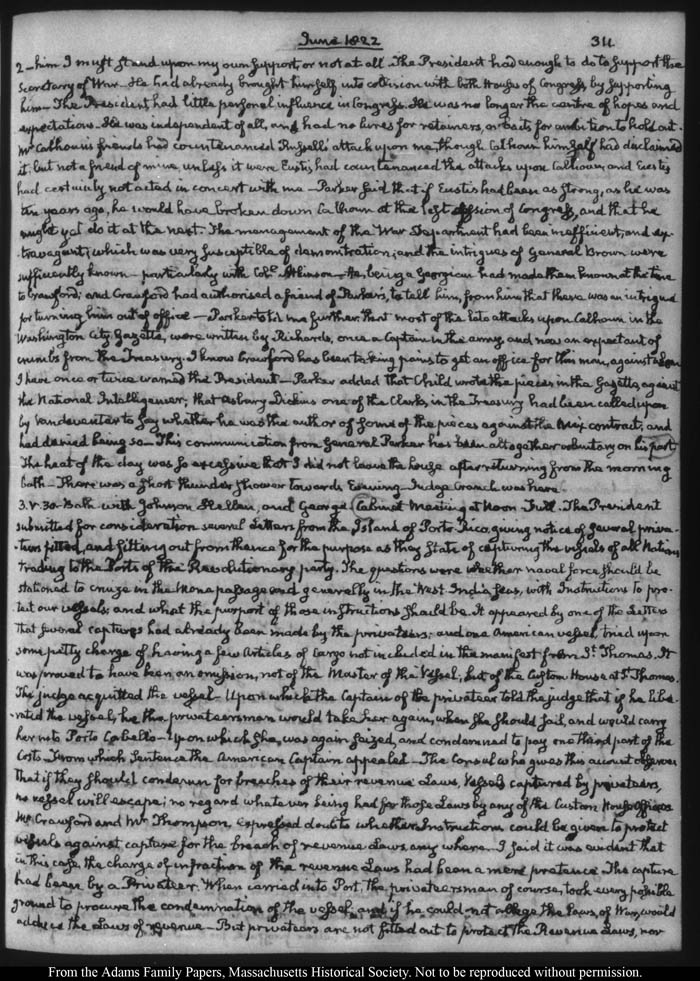 June 1822
311
2 - him I must stand upon my own support, or not at all. The President had enough to do to support the
Secretary of War - He had already brought himself into collision with both Houses of Congress, by supporting
him - The President had little personal influence in Congress. He was no longer the centre of hopes and
expectations - He was independent of all, and had no lures for retainers, or baits for ambition to hold out.
Mr Calhoun's friends had countenanced Russell's attack upon me, though Calhoun himself had disclaimed
it; but not a friend of mine, unless it were Eustis had countenanced the attacks upon Calhoun, and Eustis
had certainly not acted in concert with me - Parker said that if Eustis had been as strong, as he was
ten years ago, he would have broken down Calhoun at the last Session of Congress, and that he
might yet do it at the next. The management of the War Department had been inefficient, and ex-
travagant; which was very susceptible of demonstration; and the intrigues of General Brown were
sufficiently known - particularly with Coll. Atkinson - He, being a Georgian had made them known at the time
to Crawford; and Crawford had authorised a friend of Parker's, to tell him, from him that there was an intrigue
for turning him out of office - Parker told me further that most of the late attacks upon Calhoun in the
Washington City Gazette, were written by Richards, once a Captain in the army and now an expectant of
crumbs from the Treasury. I know Crawford has been taking pains to get an office for this man, against whom
I have once or twice warned the President - Parker added that Child wrote the pieces in the Gazette, against
the National Intelligencer; that Asbury Dickins one of the Clerks in the Treasury had been called upon
by Vandeventer to say whether he was the author of some of the pieces against the Mix contract; and
had denied being so - This communication from General Parker has been altogether voluntary on his part.
The heat of the day was so excessive that I did not leave the house after returning from the morning
bath - There was a short thunder shower towards Evening. Judge Cranch was here.
3. V:30. Bath with Johnson Hellen, and George. Cabinet Meeting at Noon. Full. The President
submitted for consideration several Letters from the Island of Porto Rico, giving notice of several priva-
-teers fitted, and fitting out from thence for the purpose as they state of capturing the vessels of all Nations
trading to the Ports of the Revolutionary party. The questions were whether naval force should be
stationed to cruize in the Mona passage and generally in the West India Seas, with Instructions to pro-
tect our vessels; and what the purport of those instructions should be. It appeared by one of the Letters
that several captures had already been made by the privateers; and one American vessel, tried upon
some petty charge of having a few Articles of Cargo not included in the manifest from St. Thomas. It
was proved to have been an omission, not of the Master of the Vessel, but of the Custom House at St. Thomas.
The judge acquitted the vessel - Upon which the Captain of the privateer told the judge that if he libe-
-rated the vessel, he the privateersman would take her again, when she should sail, and would carry
her into Porto Cabello - Upon which she was again seized, and condemned to pay one third part of the
Costs - From which Sentence the American Captain appealed - The Consul who gives this account observes
that if they should condemn for breaches of their revenue Laws, Vessels captured by privateers,
no vessel will escape; no regard whatever being had for those Laws by any of the Custom House Officers
Mr Crawford and Mr Thompson, expressed doubts whether Instructions could be given to protect
vessels against capture for the breach of revenue Laws any where. I said it was evident that
in this case, the charge of infraction of the revenue Laws had been a mere pretence. The capture
had been by a Privateer. When carried into Port, the privateersman of course, took every possible
ground to procure the condemnation of the vessel, and if he could not allege the Laws of War, would
adduce the Laws of revenue - But privateers are not fitted out to protect the Revenue Laws, nor
From the Adams Family Papers, Massachusetts Historical Society. Not to be reproduced without permission.